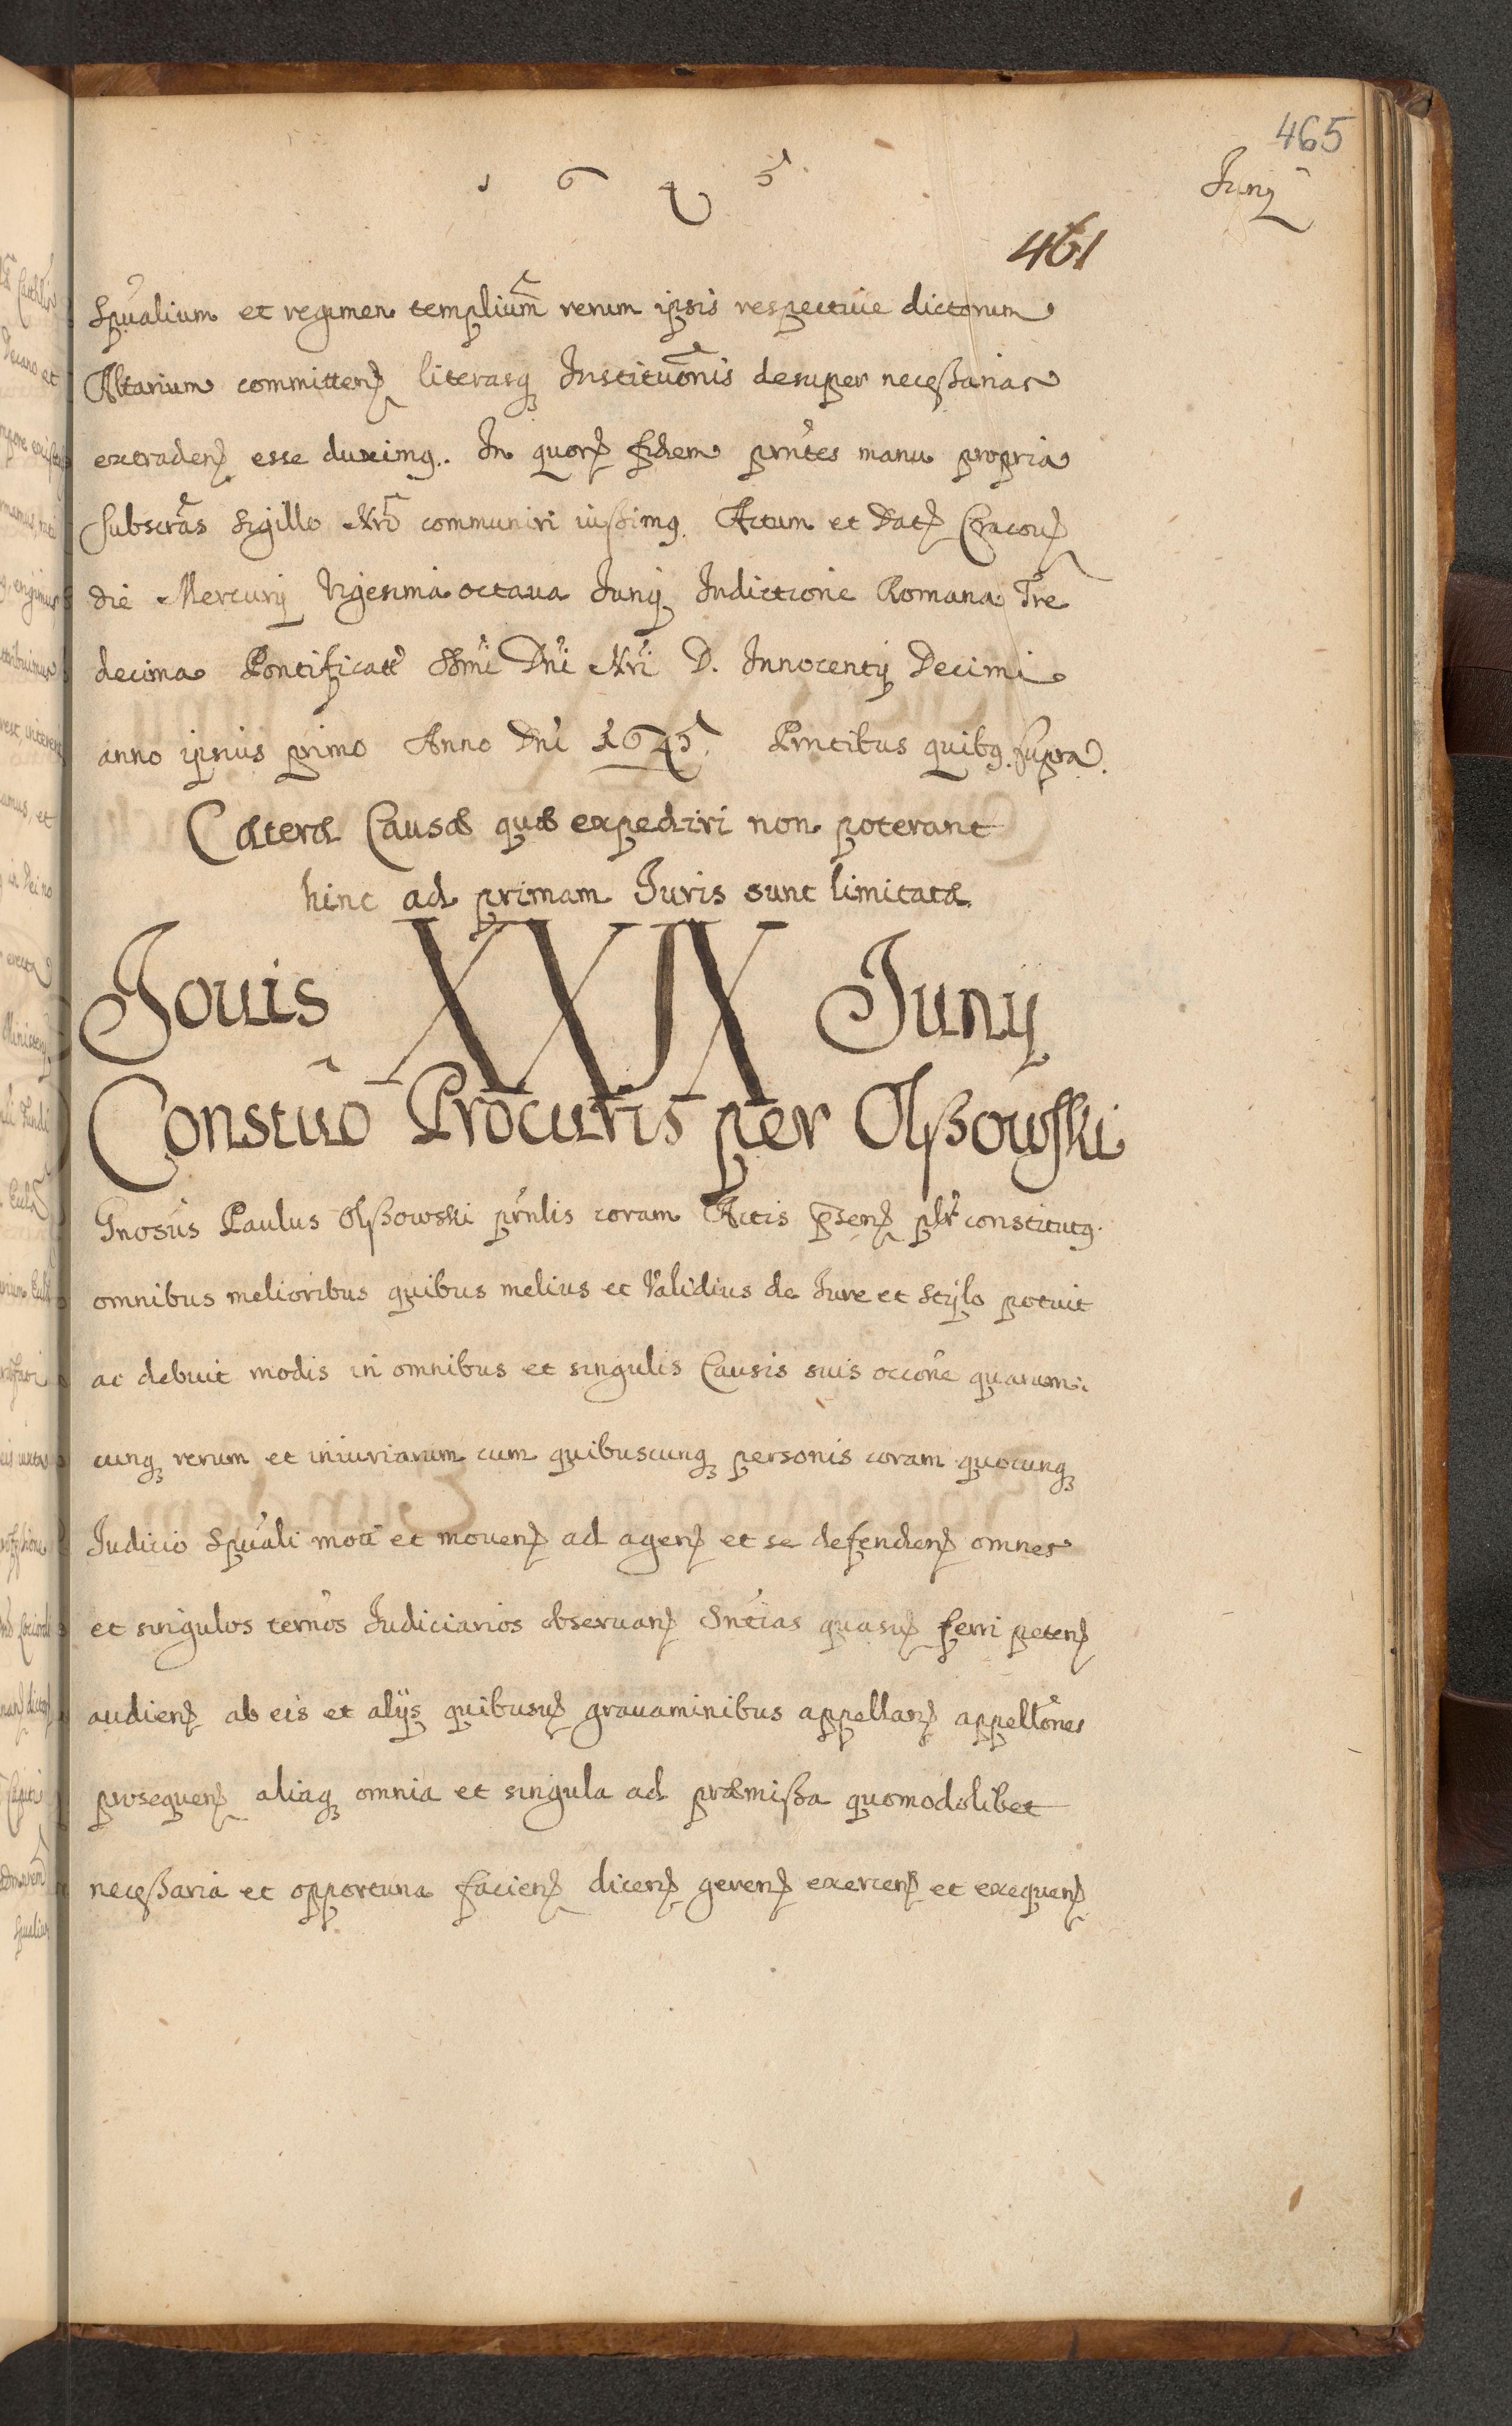 465
1645
Junÿ
461
Spũalium et regimen templium̃ rerum ipsis respectiue dictorum
Altarium committenꝭ literasqꝫ Instituõnis desuper neceßarias
extradenꝭ esse duximꝰ. In quorꝭ fidem pñtes manu propria
Subscrãs Sigillo Nrõ communiri iußimꝰ. Actum et Datꝭ Cracouꝭ
die Mercurÿ Vigesima octaua Junÿ Indictione Romana Tre
decima Pontificatꝰ Sŝmi Dñi Nrĩ D. Innocentÿ Decimi
anno ipsius primo Anno Dñi 1645. Pñtibus quibꝰ supra.
Cæteræ Causæ quæ expediri non poterant
hinc ad primam Juris sunt limitatæ.
Jouis XXIX Junÿ
Constũo Procuris per Olßowski
Gnosus Paulus Olßowski prñlis coram Actis p̃senꝭ plr̃ constitutꝰ
omnibus melioribus quibus melius et Validius de Jure et Stÿlo potuit
ac debuit modis in omnibus et singulis Causis suis occõne quarum:
cunqꝫ rerum et iniuriarum cum quibuscunqꝫ personis coram quocunqꝫ
Judicio Spũali motĩ et mouenꝭ ad agenꝭ et se defendenꝭ omnes
et singulos terños Judiciarios obseruanꝭ Sñtias quasuꝭ ferri petenꝭ
audienꝭ ab eis et alÿs quibusuꝭ grauaminibus appellanꝭ appellõnes
prosequenꝭ aliaqꝫ omnia et singula ad præmißa quomodolibet
neceßaria et opportuna facienꝭ dicenꝭ gerenꝭ exercenꝭ et exequenꝭ